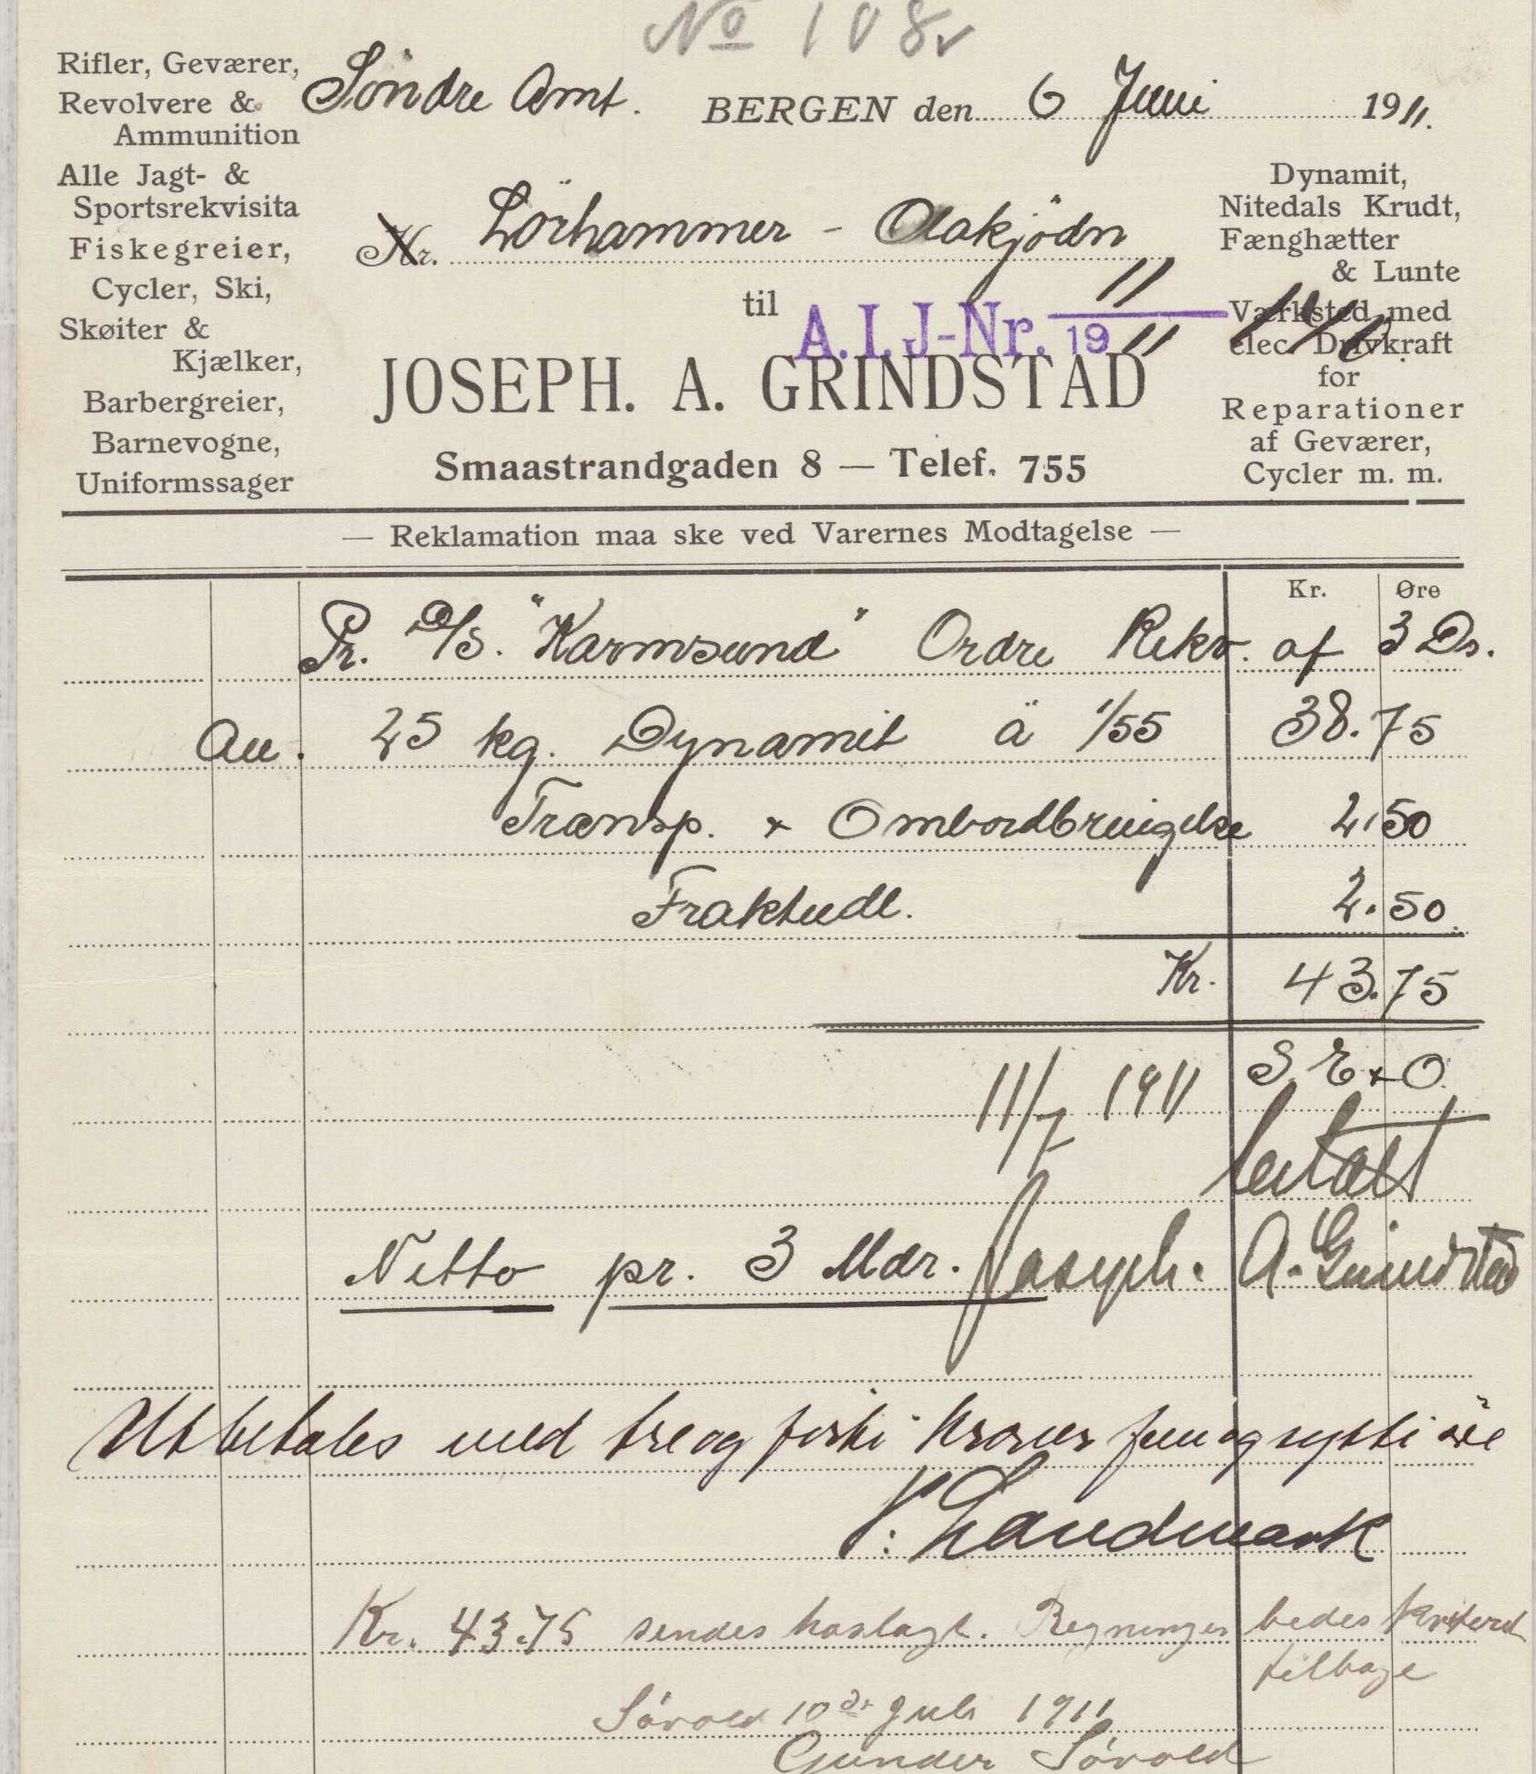 No 108
Rifler, Geværer,
Revolvere &
Ammunition
Alle Jagt- &
Sportsrekvisita
Fiskegreier,
Cycler, Ski,
Skøiter &
Kjælker,
Barbergreier,
Barnevogne,
Uniformssager
Söndre Amt.
BERGEN den 6 Juni 1911.
Hr. Lörhammer - Aakjödn
til
A.I.J-Nr. 11 1911
JOSEPH. A. GRINDSTAD
Smaastrandgaden 8 — Telef. 755
Dynamit,
Nitedals Krudt,
Fænghætter
& Lunte
Værksted med
elec. Drivkraft
for
Reparationer
af Geværer,
Cycler m. m.
— Reklamation maa ske ved Varernes Modtagelse —
Kr. Øre
Pr. D/S. "Karmsund" Ordre Rekv. af 3 Ds.
An. 25 kg. Dynamit ä 1/55 38.75
Transp. & Ombordbringelse 2.50
Fraktudl. 2.50
Kr. 43.75
S. E. & O.
11/7 1911 betalt
Netto pr. 3 Mdr. Joseph. A. Grindstad
Utbetales med tre og forti kroner fem og sytti øre
Landmark
Kr. 43.75 sendes hoslagt. Regningen bedes kvitterd
tilbage
Sörold 10de Juli 1911
Gunder Sörold